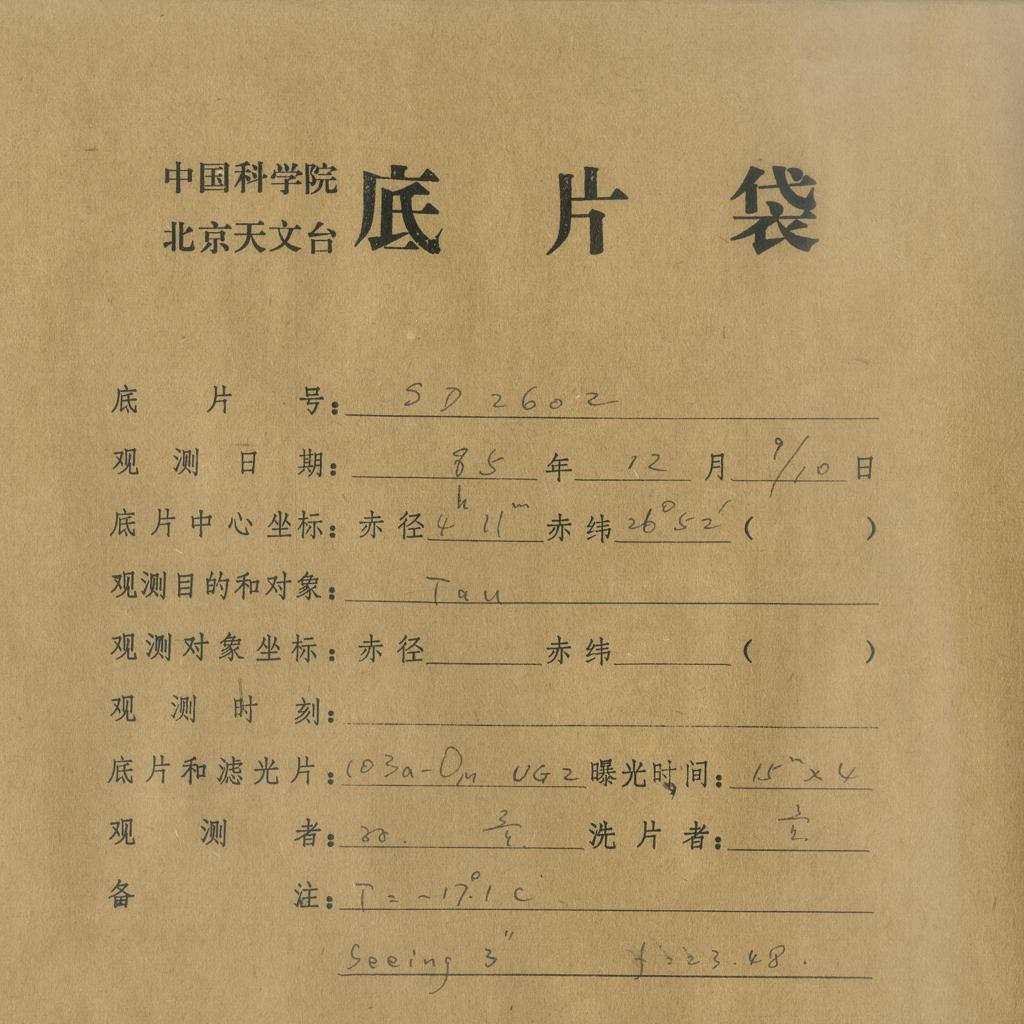 中国科学院
北京天文台 底片袋
底片号: SD 2602
观测日期: 85年12月9/10日
底片中心坐标: 赤径 4h 11m 赤纬 26°52′ ( )
观测目的和对象: Tau
观测对象坐标: 赤径 赤纬 ( )
观测时刻:
底片和滤光片: 103a-O UG2 曝光时间: 15m x 4
观测者: 洗片者:
备注: T = -17°.1 C
Seeing 3″ f = 23.48.